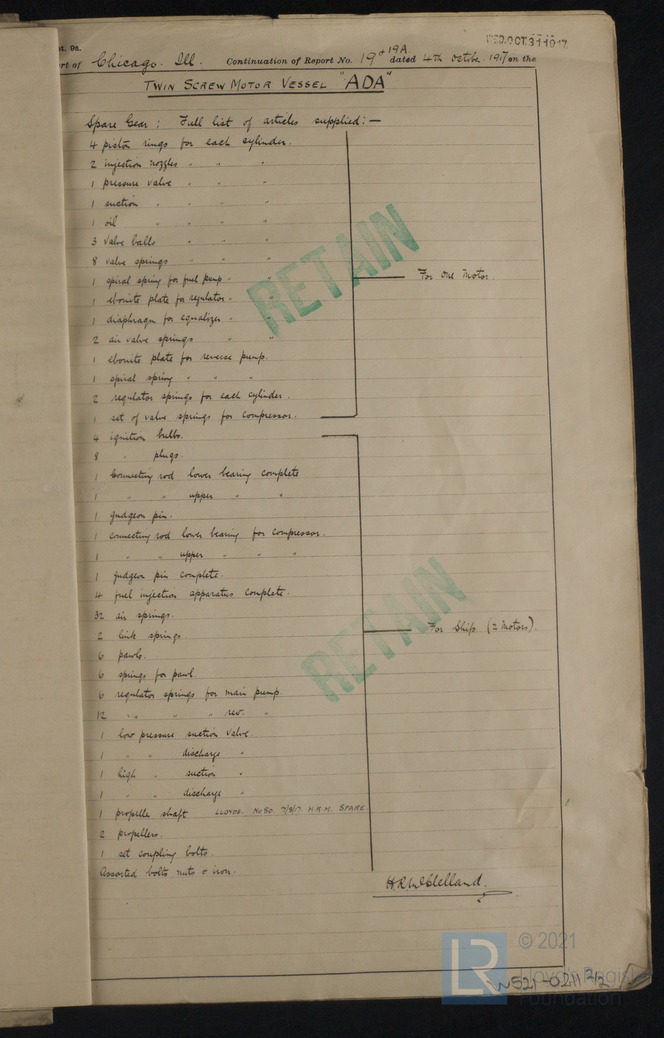 pt. 9a.
WED. OCT. 31 1917
19 & 19A
ort of Chicago. Ill. Continuation of Report No. dated 4th Octobe. 1917 on the
TWIN SCREW MOTOR VESSEL "ADA"
Spare Gear: Full list of articles supplied:—
4 piston rings for each cylinder.
2 injection nozzles " " "
1 pressure valve " " "
1 suction " " " "
1 oil " " " "
3 valve balls " " "
8 valve springs " " "
1 spiral spring for fuel pump " "
1 ebonite plate for regulator " "
1 diaphragm for equalizer " "
2 air valve springs " "
1 ebonite plate for reverse pump.
1 spiral spring " " "
2 regulator springs for each cylinder.
1 set of valve springs for compressor.
For one motor.
4 ignition bulbs.
8 " plugs.
1 Connecting rod lower bearing complete
1 " " upper " "
1 gudgeon pin.
1 connecting rod lower bearing for compressor.
1 " " upper " " "
1 gudgeon pin complete.
4 fuel injection apparatus complete.
32 air springs.
2 link springs.
6 pawls.
6 springs for pawl.
6 regulator springs for main pump.
12 " " " rev. "
1 low pressure suction valve.
1 " " discharge "
1 high " suction "
1 " " discharge "
1 propeller shaft LLOYDS. No 50. 7/8/17. H.R.M. SPARE.
2 propellers.
1 set coupling bolts.
Assorted bolts nuts & iron.
For Ship. (2 Motors).
RETAIN
RETAIN
H.R. McClelland.
LR
© 2021
Lloyd's Register
Foundation
WS21-0211 2/2